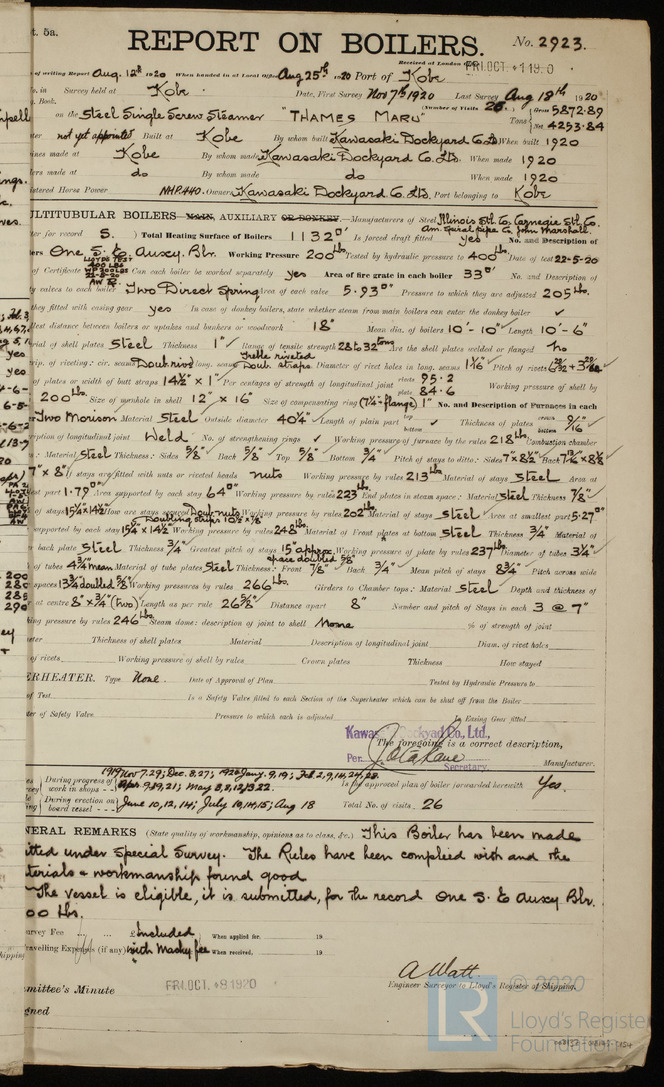 t. 5a.
REPORT ON BOILERS.
No. 2923.
Received at London Office FRI. OCT. 1920
of writing Report Aug. 12th 1920 When handed in at Local Office Aug 25th 1920 Port of Kobe
No. in Survey held at Kobe Date, First Survey Nov 7th 1920 Last Survey Aug 18th 1920
Book. (Number of Visits 26)
on the Steel Single Screw Steamer "THAMES MARU" Tons Gross 5872.89 Net 4253.84
not yet appointed Built at Kobe By whom built Kawasaki Dockyard Co. Ltd. When built 1920
ines made at Kobe By whom made Kawasaki Dockyard Co. Ltd. When made 1920
lers made at do By whom made do When made 1920
istered Horse Power NHP.440. Owners Kawasaki Dockyard Co. Ltd. Port belonging to Kobe
ULTITUBULAR BOILERS MAIN, AUXILIARY OR DONKEY.—Manufacturers of Steel Illinois Stl. Co. Carnegie Stl. Co.
ter for record S.) Total Heating Surface of Boilers 1132 □' Is forced draft fitted yes No. and Description of
lers One S. E. Auxy. Blr. Working Pressure 200 lbs Tested by hydraulic pressure to 400 lbs Date of test 22-5-20
LLOYD'S TEST
400 LBS
WP 200 LBS
22-5-20
AW
of Certificate Can each boiler be worked separately yes Area of fire grate in each boiler 33 □' No. and Description of
ty valves to each boiler Two Direct Spring Area of each valve 5.93 □" Pressure to which they are adjusted 205 lbs.
they fitted with easing gear yes In case of donkey boilers, state whether steam from main boilers can enter the donkey boiler ✓
llest distance between boilers or uptakes and bunkers or woodwork 18" Mean dia. of boilers 10'-10" Length 10'-6"
rial of shell plates Steel Thickness 1" Range of tensile strength 28 to 32 tons Are the shell plates welded or flanged no
rip. of riveting: cir. seams Doub rived long. seams Treble riveted Doub. straps Diameter of rivet holes in long. seams 1 1/16" Pitch of rivets
of plates or width of butt straps 14 1/2" x 1" Per centages of strength of longitudinal joint rivets 95.2 plate 84.6 Working pressure of shell by
200 lbs Size of manhole in shell 12" x 16" Size of compensating ring (7 1/4" flange) 1" No. and Description of Furnaces in each
Two Morison Material Steel Outside diameter 40 1/4" Length of plain part top bottom Thickness of plates crown bottom 9/16"
ription of longitudinal joint Weld No. of strengthening rings ✓ Working pressure of furnace by the rules 218 lbs Combustion chamber
s: Material Steel Thickness: Sides 5/8" Back 5/8" Top 5/8" Bottom 3/4" Pitch of stays to ditto: Sides 7" x 8 1/2" Back
7" x 8" If stays are fitted with nuts or riveted heads nuts Working pressure by rules 213 lbs Material of stays Steel Area at
lest part 1.79 □" Area supported by each stay 64 □" Working pressure by rules 223 lbs End plates in steam space: Material Steel Thickness 7/8"
of stays 15 1/4 x 14 1/2 How are stays secured Doub nuts Working pressure by rules 202 lbs Material of stays Steel Area at smallest part 5.27 □"
Doubling strips 10 1/2 x 7/8"
supported by each stay 15 1/4 x 14 1/2 Working pressure by rules 248 lbs Material of Front plates at bottom Steel Thickness 3/4" Material of
r back plate Steel Thickness 3/4" Greatest pitch of stays 15" approx. Working pressure of plate by rules 237 lbs Diameter of tubes 3 1/4"
space doubled 5/8"
of tubes 4 3/4 mean Material of tube plates Steel Thickness: Front 7/8" Back 3/4" Mean pitch of stays 8 3/4" Pitch across wide
spaces 13 3/4 doubled 5/8" Working pressures by rules 266 lbs. Girders to Chamber tops: Material Steel Depth and thickness of
at centre 8" x 3/4" (two) Length as per rule 26 5/8" Distance apart 8" Number and pitch of Stays in each 3 @ 7"
king pressure by rules 246 lbs Steam dome: description of joint to shell None % of strength of joint
eter Thickness of shell plates Material Description of longitudinal joint Diam. of rivet holes
of rivets Working pressure of shell by rules Crown plates Thickness How stayed
ERHEATER. Type None. Date of Approval of Plan Tested by Hydraulic Pressure to
of Test Is a Safety Valve fitted to each Section of the Superheater which can be shut off from the Boiler
ter of Safety Valve Pressure to which each is adjusted Is Easing Gear fitted
Kawasaki Dockyard Co., Ltd.,
The foregoing is a correct description,
Per Secretary. Manufacturer.
During progress of work in shops -- 1919 Nov 7.29; Dec. 8,27; 1920 Jany. 9,19; Feb 2,9,14,24,28.
Is the approved plan of boiler forwarded herewith Yes.
During erection on board vessel --- June 10,12,14; July 10,14,15; Aug 18 Total No. of visits 26
NERAL REMARKS (State quality of workmanship, opinions as to class, &c.) This Boiler has been made
itted under Special Survey. The Rules have been complied with and the
terials & workmanship found good
The vessel is eligible, it is submitted, for the record One S. E. Auxy Blr.
00 lbs.
urvey Fee ... £ Included When applied for. 19
ravelling Expenses (if any) with Machy fee When received, 19
A Watt
Engineer Surveyor to Lloyd's Register of Shipping.
mmittee's Minute FRI. OCT. 8 1920
gned
© 2020
LR
Lloyd's Register
Foundation